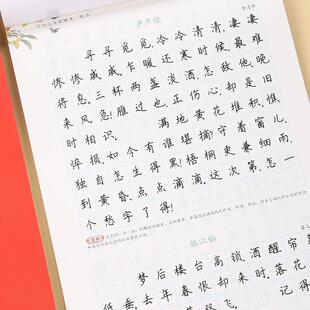 声声慢
李清照
寻寻觅觅,冷冷清清,凄凄
惨惨戚戚。乍暖还寒时候,最难
将息。三杯两盏淡酒,怎敌他晚
来风急!雁过也,正伤心,却是旧
时相识。
满地黄花堆积,憔
悴损,如今有谁堪摘?守着窗儿,
独自怎生得黑!梧桐更兼细雨,
到黄昏、点点滴滴。这次第,怎一
个愁字了得!
临江仙
梦后楼台高锁,酒醒帘
低垂。去年春恨却来时。落花
双飞。
记得